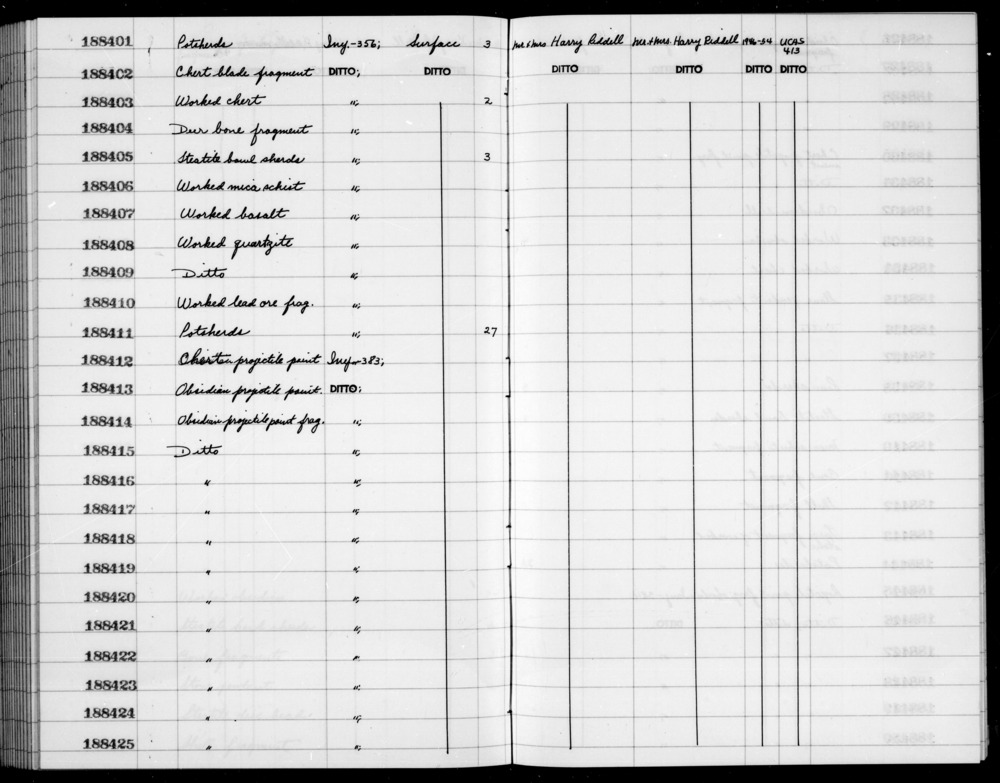 188401 Potsherds Iny-356; Surface 3 Mr. & Mrs. Harry Riddell Mr. & Mrs. Harry Riddell 1946-54 UCAS 413
188402 Chert blade fragment DITTO; DITTO DITTO DITTO DITTO DITTO
188403 Worked chert "; 2
188404 Deer bone fragment ";
188405 Steatite bowl sherds "; 3
188406 Worked mica schist ";
188407 Worked basalt ";
188408 Worked quartzite ";
188409 Ditto ";
188410 Worked lead ore frag. ";
188411 Potsherds "; 27
188412 projectile point Iny-383;
188413 Obsidian projectile point. DITTO;
188414 Obsidian projectile point frag. ";
188415 Ditto ";
188416 " ";
188417 " ";
188418 " ";
188419 " ";
188420 " ";
188421 " ";
188422 " ";
188423 " ";
188424 " ";
188425 " ";